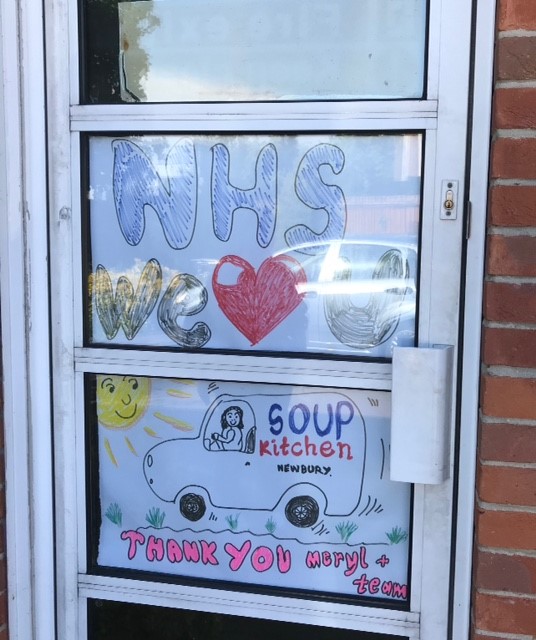 NHS
We U
SOUP
Kitchen
NEWBURY.
THANK YOU Meryl +
team